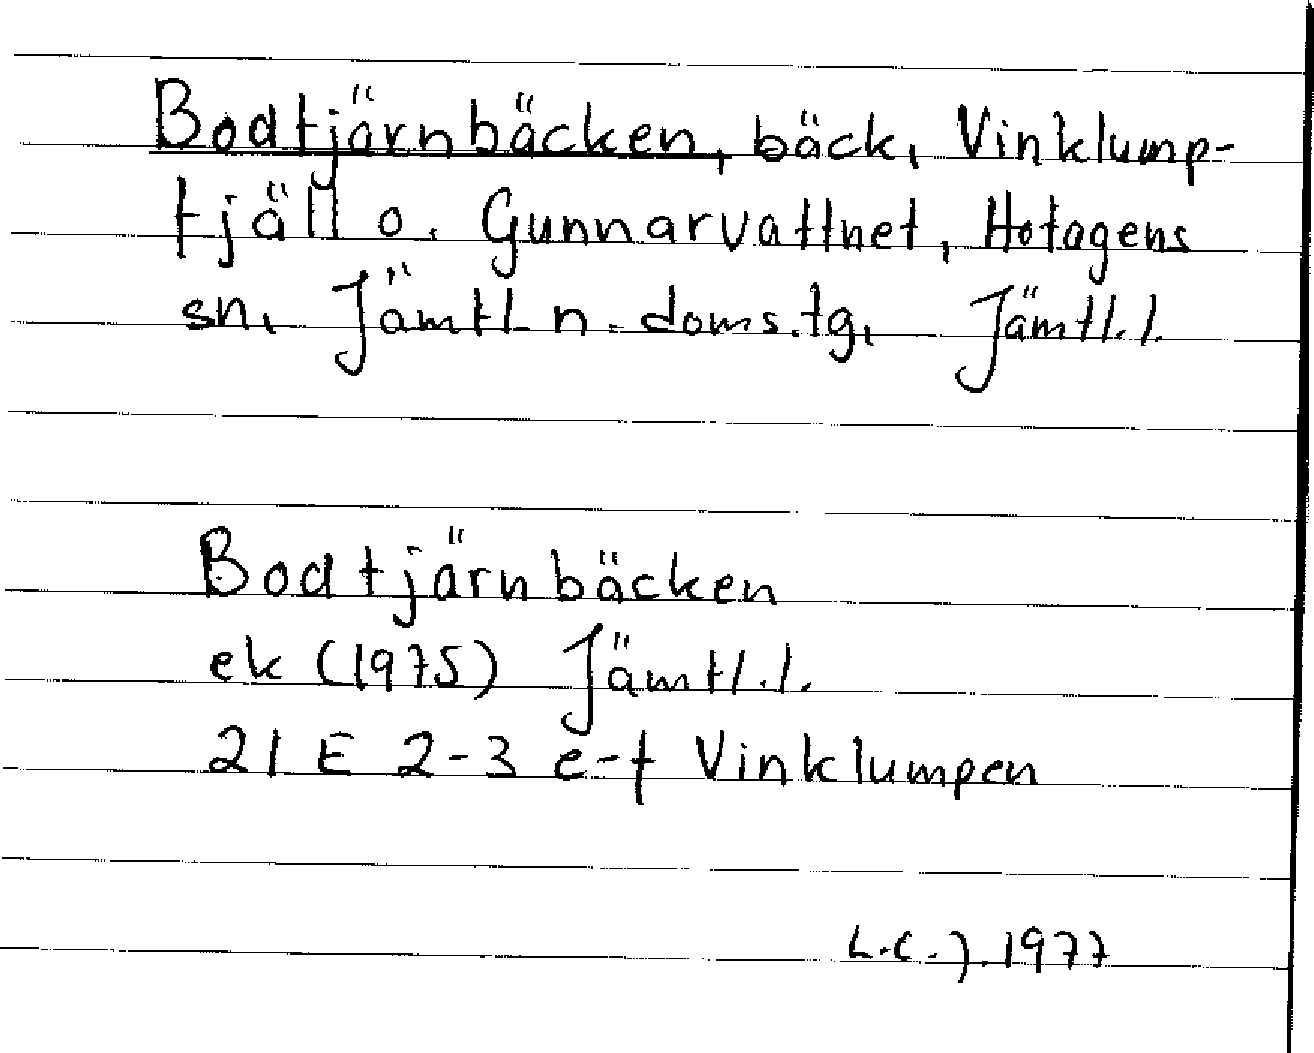 Bodtjärnbäcken, bäck, Vinklump-
tjäll o. Gunnarvattnet, Hotagens
sn, Jämtl. n. doms.tg, Jämtl.l.
Bodtjärnbäcken
ek (1975) Jämtl.l.
21 E 2-3 e-f Vinklumpen
L.C.J. 1977